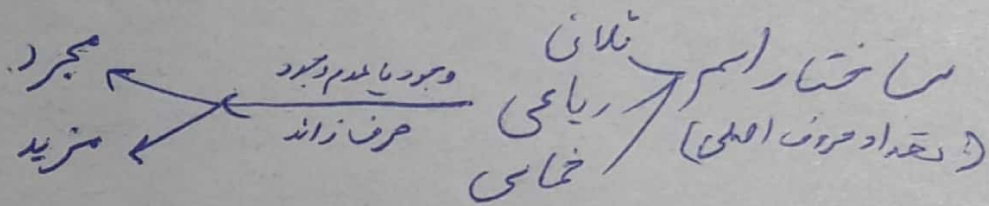 ساختار اسم
(تعداد حروف اصلی)
ثلاثی
رباعی
خماسی
وجود یا عدم وجود
حرف زائد
مجرد
مزید